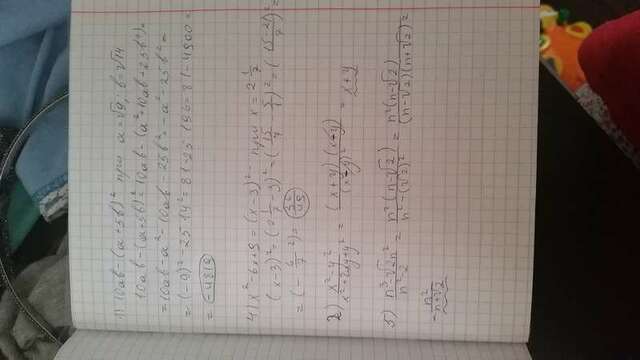 1) 10ab-(a+5b)² при a=√9; b=√14
10ab-(a+5b)²=10ab-(a²+10ab+25b²)=
=10ab-a²-10ab-25b²=-a²-25b²=
=(-9)²-25·14²=81-25·196=81-4900=
=-4819
4) x²-6x+9=(x-3)²- при x=2 1/7
(x-3)²=(2 1/7-3)²=(15/7-3/1)²=(15-21/7)²=
=(-6/7²)=36/49
2) x²-y²/x²+2xy+y²=(x+y)(x+y)/(x+y)²=x+y
5) n³-√2n²/n²-2=n²(n-√2)/n²-(√2)²=n²(n-√2)/(n-√2)(n+√2)=
=n²/n+√2